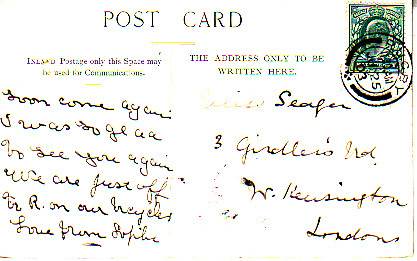 POST CARD
INLAND Postage only this Space may
be used for Communications.
THE ADDRESS ONLY TO BE
WRITTEN HERE.
Soon come again
I was so glad
to see you again
We are just off
to R. on our bicycles
Love from Sophie
Miss Seager
3 Girdlers Rd
W. Kensington
London